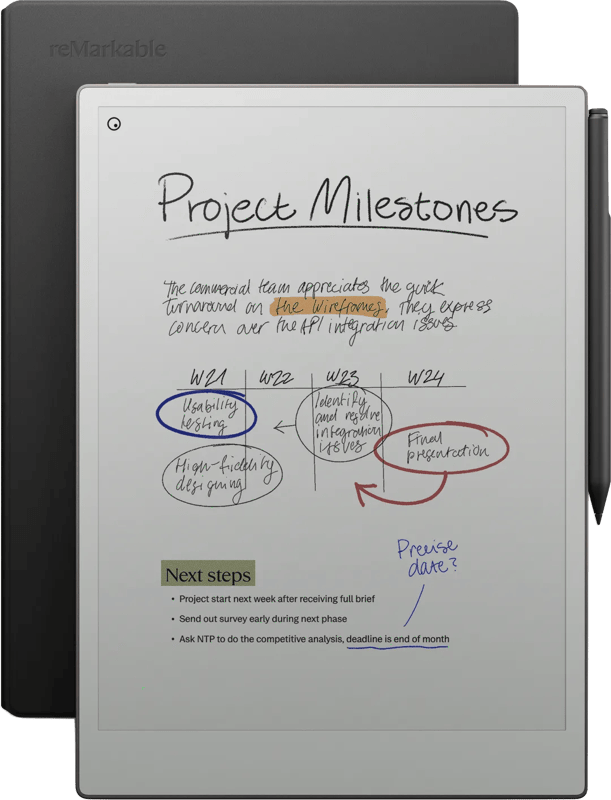 reMarkable
Project Milestones
The commercial team appreciates the quick
turnaround on the wireframes, They express
concern over the API integration issues
W21 W22 W23 W24
Usability
testing
Identify
and resolve
integration
issues
Final
presentation
High-fidelity
designing
Precise
date?
Next steps
• Project start next week after receiving full brief
• Send out survey early during next phase
• Ask NTP to do the competitive analysis, deadline is end of month